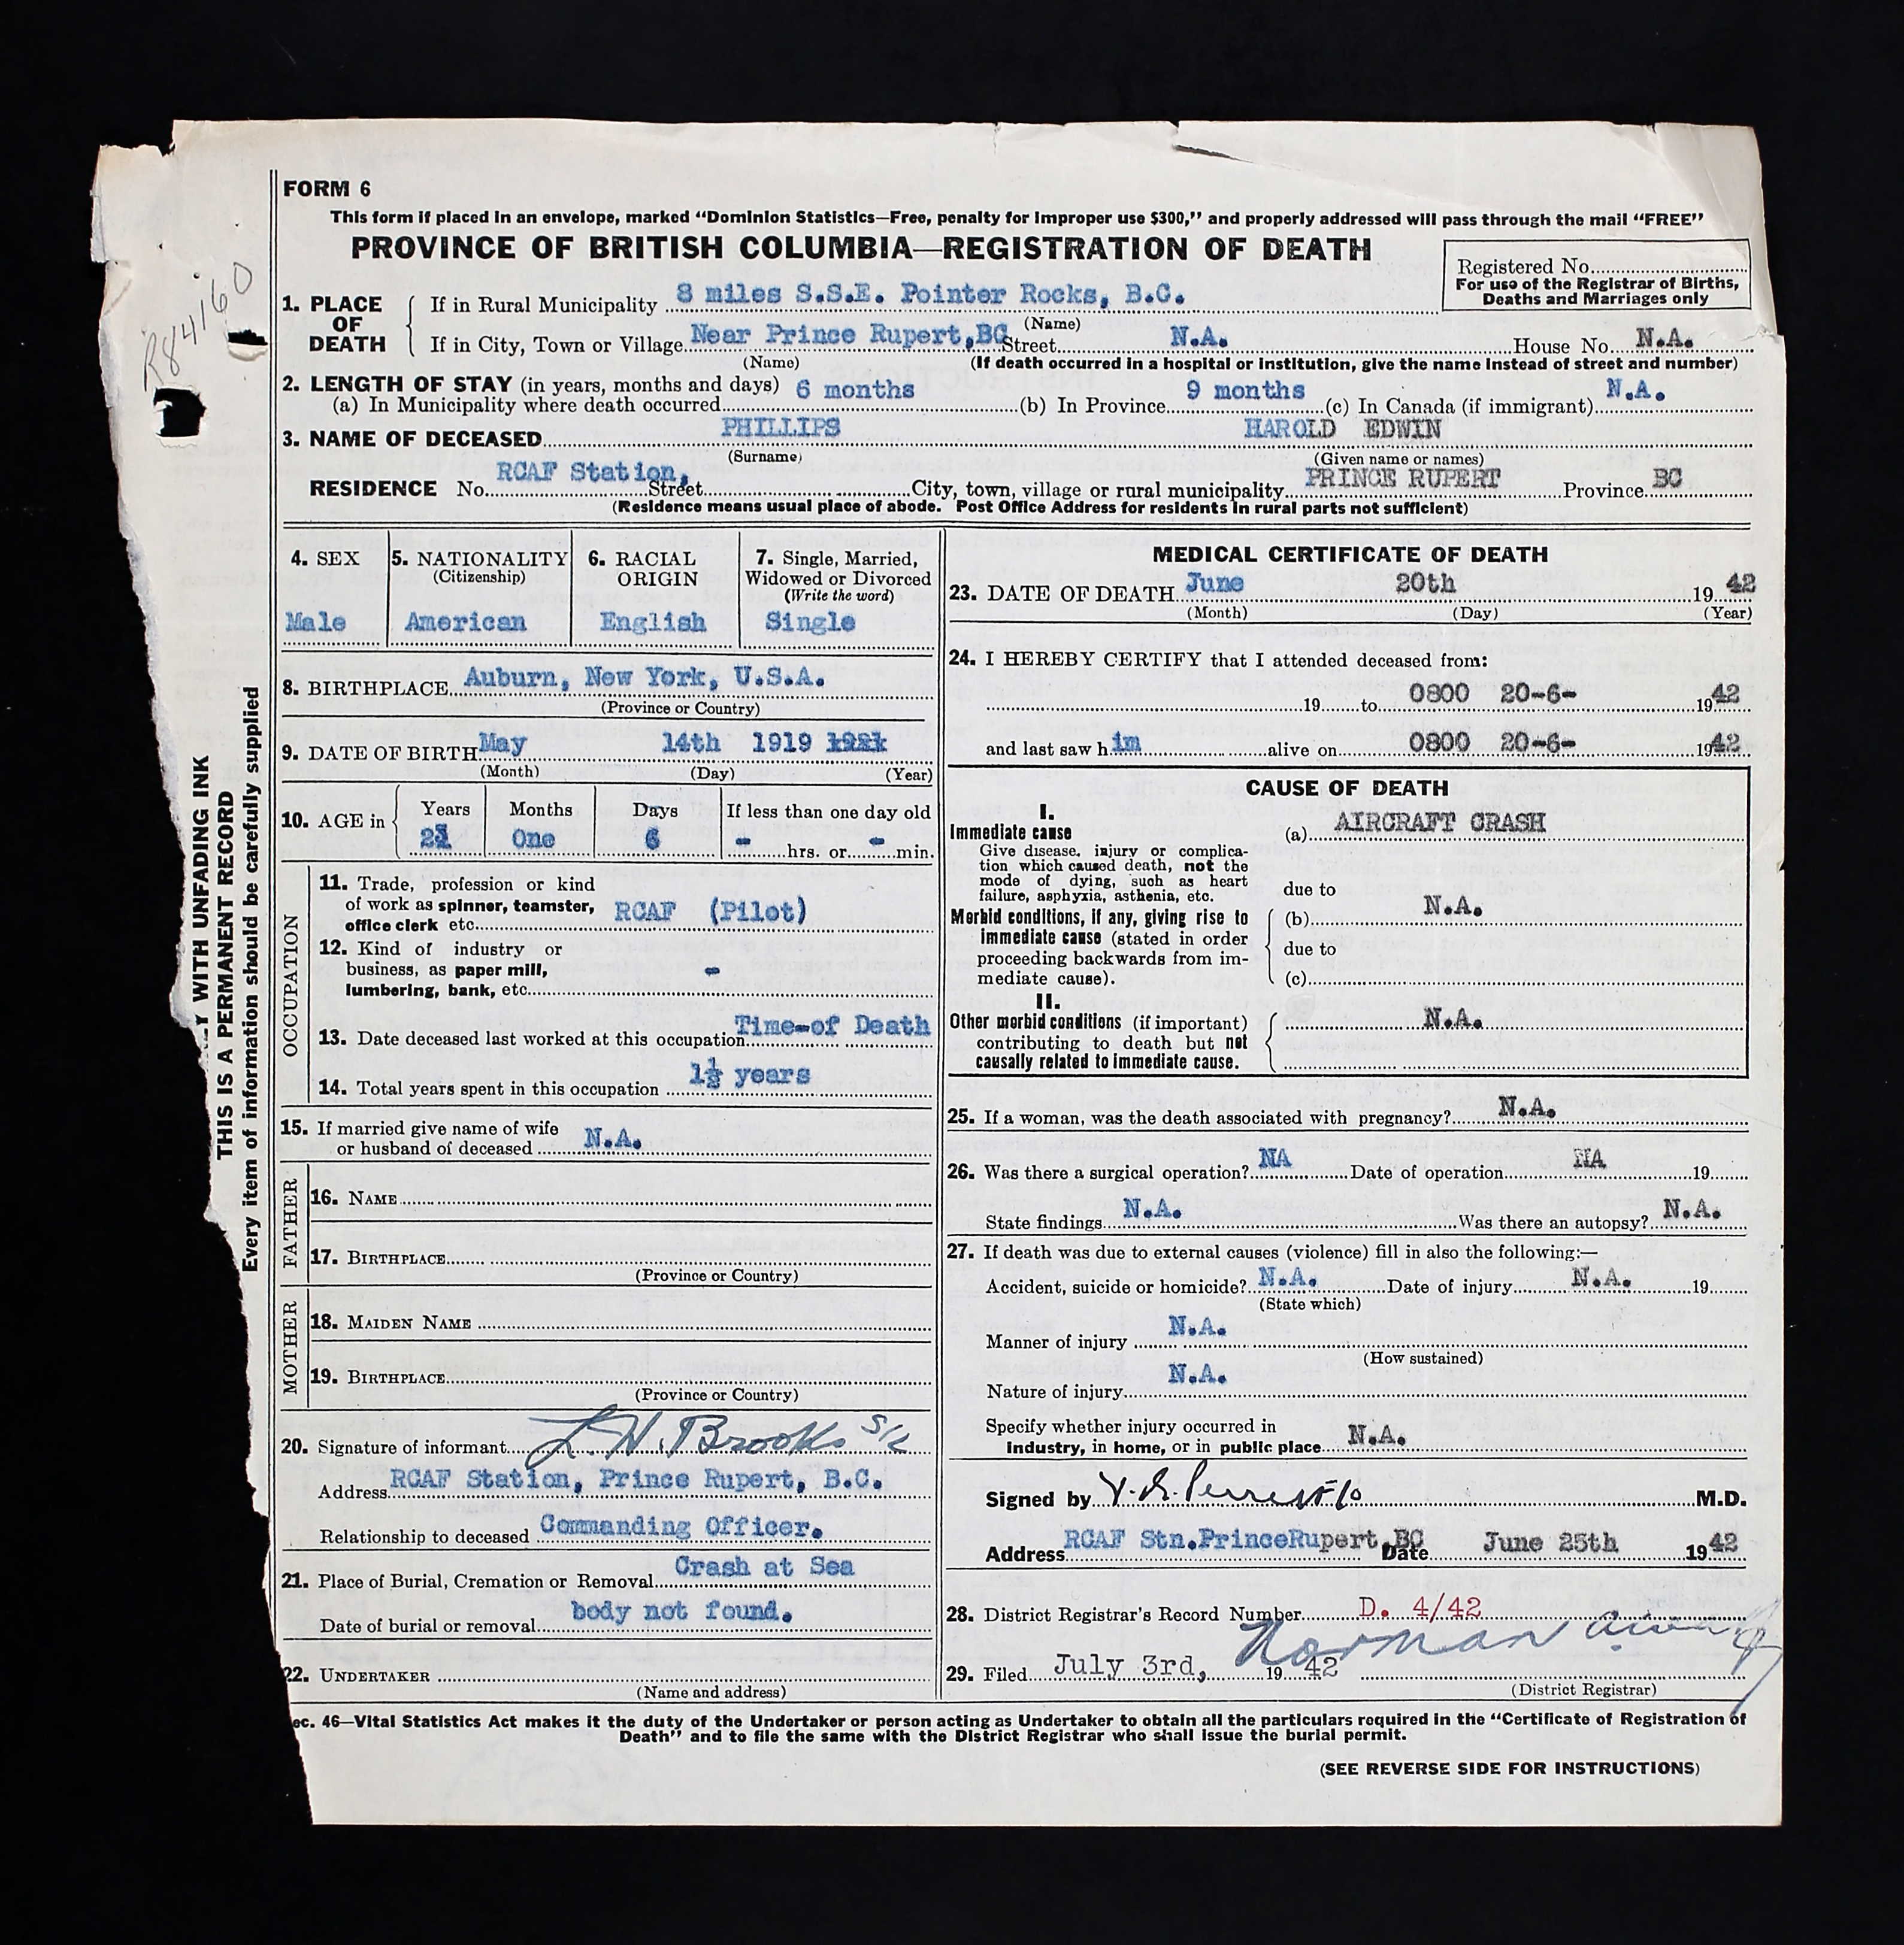 FORM 6
This form if placed in an envelope, marked “Dominion Statistics—Free, penalty for improper use $300,” and properly addressed will pass through the mail “FREE”
PROVINCE OF BRITISH COLUMBIA—REGISTRATION OF DEATH
Registered No.
For use of the Registrar of Births,
Deaths and Marriages only
R84160
1. PLACE OF DEATH
If in Rural Municipality 8 miles S.S.E. Pointer Rocks, B.C.
(Name)
If in City, Town or Village Near Prince Rupert,BC Street N.A. House No. N.A.
(Name) (If death occurred in a hospital or institution, give the name instead of street and number)
2. LENGTH OF STAY (in years, months and days)
(a) In Municipality where death occurred 6 months (b) In Province 9 months (c) In Canada (if immigrant) N.A.
3. NAME OF DECEASED PHILLIPS HAROLD EDWIN
(Surname) (Given name or names)
RESIDENCE No. RCAF Station, Street City, town, village or rural municipality PRINCE RUPERT Province BC
(Residence means usual place of abode. Post Office Address for residents in rural parts not sufficient)
4. SEX
Male
5. NATIONALITY
(Citizenship)
American
6. RACIAL
ORIGIN
English
7. Single, Married,
Widowed or Divorced
(Write the word)
Single
8. BIRTHPLACE Auburn, New York, U.S.A.
(Province or Country)
9. DATE OF BIRTH May 14th 1919
(Month) (Day) (Year)
10. AGE in Years Months Days If less than one day old
One 6 - hrs. or - min.
OCCUPATION
11. Trade, profession or kind
of work as spinner, teamster,
office clerk etc. RCAF (Pilot)
12. Kind of industry or
business, as paper mill,
lumbering, bank, etc. -
13. Date deceased last worked at this occupation Time-of Death
14. Total years spent in this occupation 1½ years
15. If married give name of wife
or husband of deceased N.A.
FATHER
16. NAME
17. BIRTHPLACE
(Province or Country)
MOTHER
18. MAIDEN NAME
19. BIRTHPLACE
(Province or Country)
20. Signature of informant L. H. Brooks S/L
Address RCAF Station, Prince Rupert, B.C.
Relationship to deceased Commanding Officer.
21. Place of Burial, Cremation or Removal Crash at Sea
Date of burial or removal body not found.
22. UNDERTAKER
(Name and address)
MEDICAL CERTIFICATE OF DEATH
23. DATE OF DEATH June 20th 19 42
(Month) (Day) (Year)
24. I HEREBY CERTIFY that I attended deceased from:
19 to 0800 20-6- 19 42
and last saw h im alive on 0800 20-6- 19 42
CAUSE OF DEATH
I.
Immediate cause
Give disease, injury or complica-
tion which caused death, not the
mode of dying, such as heart
failure, asphyxia, asthenia, etc.
(a) AIRCRAFT CRASH
due to
Morbid conditions, if any, giving rise to
immediate cause (stated in order
proceeding backwards from im-
mediate cause).
(b) N.A.
due to
(c)
II.
Other morbid conditions (if important)
contributing to death but not
causally related to immediate cause.
N.A.
25. If a woman, was the death associated with pregnancy? N.A.
26. Was there a surgical operation? NA Date of operation NA 19
State findings N.A. Was there an autopsy? N.A.
27. If death was due to external causes (violence) fill in also the following:—
Accident, suicide or homicide? N.A. Date of injury N.A. 19
(State which)
Manner of injury N.A.
(How sustained)
Nature of injury N.A.
Specify whether injury occurred in
industry, in home, or in public place N.A.
Signed by M.D.
Address RCAF Stn.PrinceRupert,BC Date June 25th 1942
28. District Registrar's Record Number D. 4/42
29. Filed July 3rd, 19 42 Norman
(District Registrar)
ec. 46—Vital Statistics Act makes it the duty of the Undertaker or person acting as Undertaker to obtain all the particulars required in the “Certificate of Registration of
Death” and to file the same with the District Registrar who shall issue the burial permit.
(SEE REVERSE SIDE FOR INSTRUCTIONS)
WITH UNFADING INK
THIS IS A PERMANENT RECORD
Every item of information should be carefully supplied